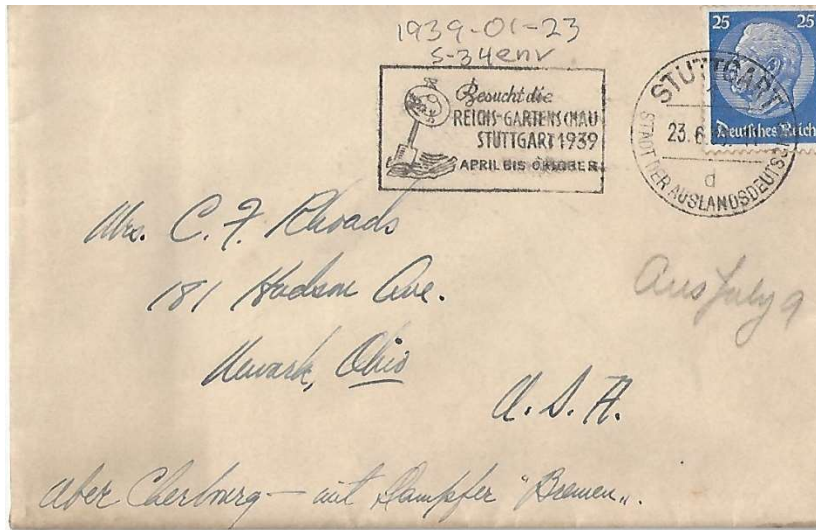 1939-01-23
S-34env
Besucht die
REICHS-GARTENSCHAU
STUTTGART 1939
APRIL BIS OKTOBER
25 25
Deutsches Reich
STUTTGART
23.6
d
STADT DER AUSLANDSDEUTSCHEN
Mrs. C. F. Rhoads
181 Hudson Ave.
Newark, Ohio
U. S. A.
Ans July 9
über Cherbourg — mit Dampfer "Bremen".